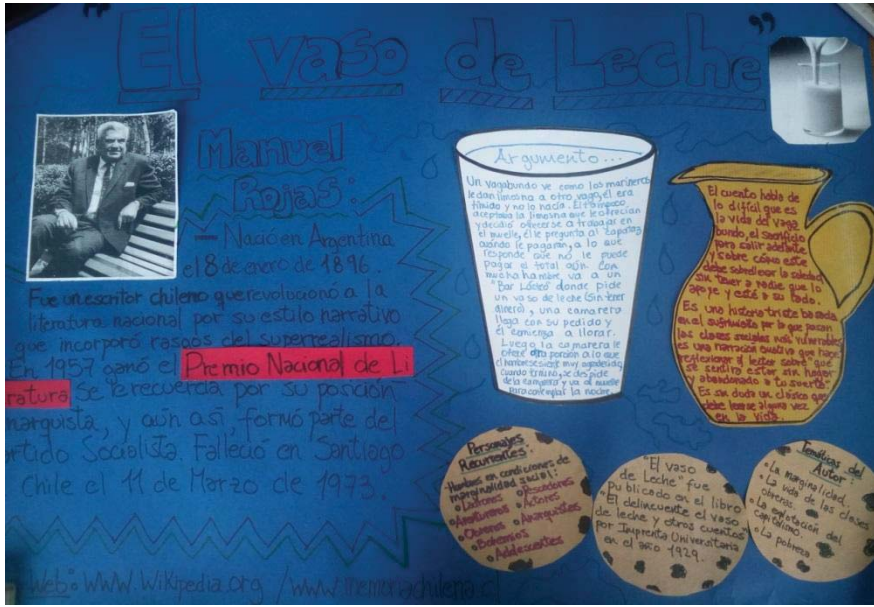 "El vaso de Leche"
Manuel
Rojas:
- Nació en Argentina
el 8 de enero de 1896.
Fue un escritor chileno que revolucionó a la
literatura nacional por su estilo narrativo
que incorporó rasgos del superrealismo.
En 1957 ganó el Premio Nacional de Li
ratura. Se le recuerda por su posición
narquista, y aún así, formó parte del
rtido Socialista. Falleció en Santiago
Chile el 11 de Marzo de 1973.
Web: www.Wikipedia.org / www.memoriachilena.cl
Argumento...
Un vagabundo ve como los marineros
le dan limosna a otro vago, él era
tímido y no lo hacía. El tampoco
aceptaba la limosna que le ofrecían
y decidió ofrecerse a trabajar en
el muelle, él le pregunta al capataz
cuándo le pagaran, a lo que
responde que no le puede
pagar el total aún. Con
mucha hambre va a un
"Bar Lácteo" donde pide
un vaso de leche (Sin tener
dinero), una camarera
llega con su pedido y
él comienza a llorar.
Luego la camarera le
ofrece otra porción a lo que
el hombre se siente muy agradecido,
cuando termino, se despide
de la camarera y va al muelle
para contemplar la noche.
El cuento habla de
lo difícil que es
la vida del vaga
bundo, el sacrificio
para salir adelante
y sobre cómo este
debe sobrellevar la soledad,
sin tener a nadie que lo
apoye y esté a su lado.
Es una historia triste basada
en el sufrimiento por lo que pasan
las clases sociales más vulnerables,
es una narración emotiva que hace
reflexionar al lector sobre "que
se sentiría estar sin hogar
y abandonado a tu suerte"
Es sin duda un clásico que
debe leerse alguna vez
en la vida.
Personajes
Recurrentes:
-Hombres en condiciones de
marginalidad social:
• Ladrones • Pescadores
• Aventureros • Actores
• Obreros • Anarquistas
• Bohemios
• Adolescentes
"El vaso
de Leche" fue
Publicado en el libro
"El delincuente el vaso
de leche y otros cuentos"
por Imprenta Universitaria
en el año 1929.
Temáticas del
Autor:
• La marginalidad.
• La vida de las clases
obreras.
• La explotación del
capitalismo.
• La pobreza